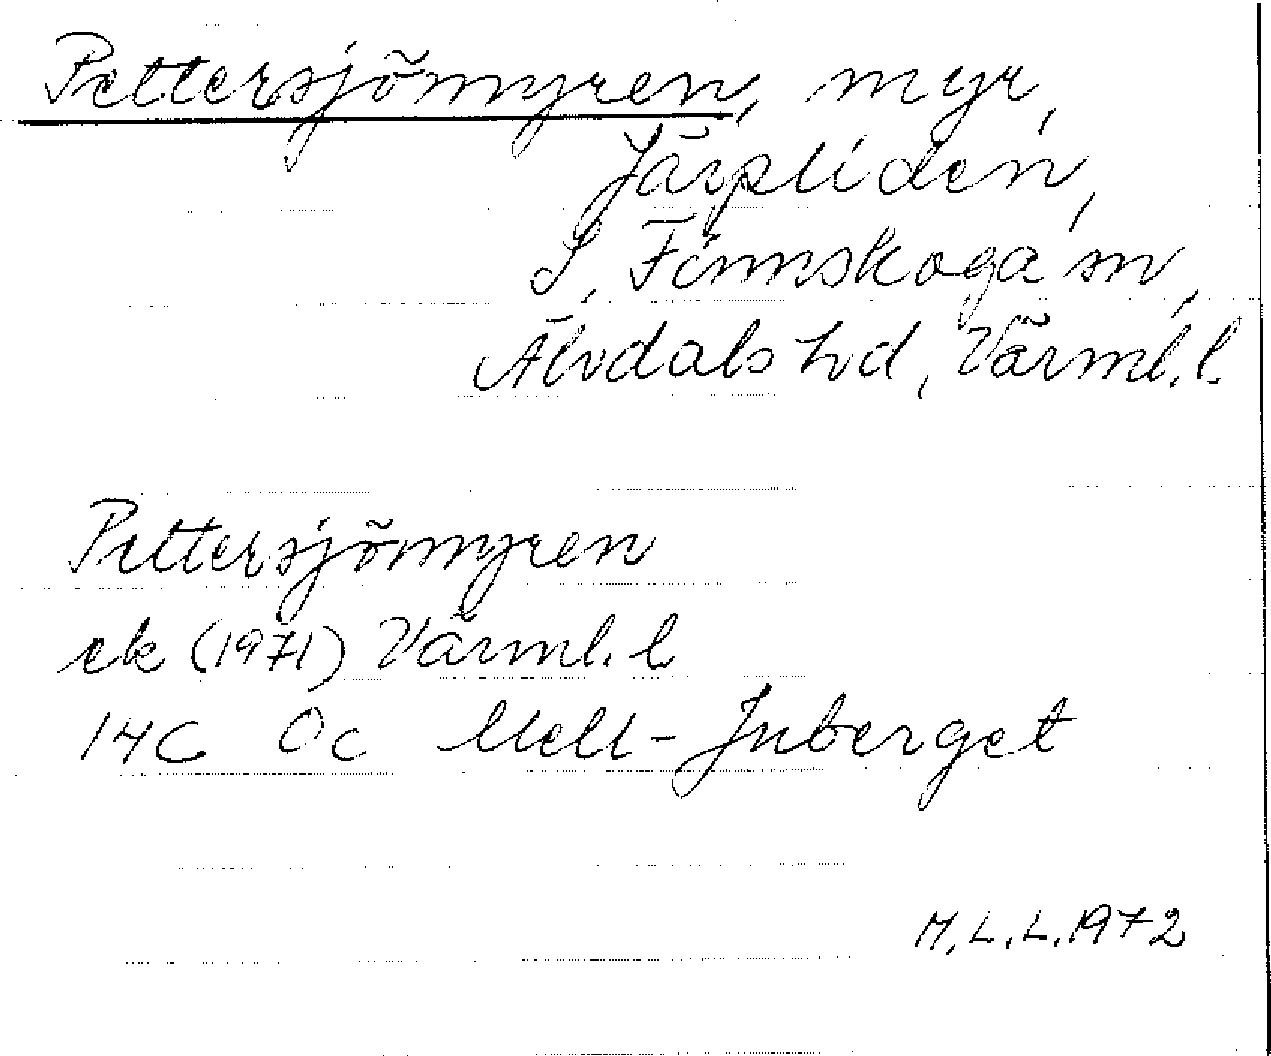 Pettersjömyren, myr,
Järpliden,
S. Finnskoga sn,
Älvdals hd, Värml. l.
Pettersjömyren
ek (1971) Värml. l.
14C Oc Mell-Juberget
M.L.L. 1972